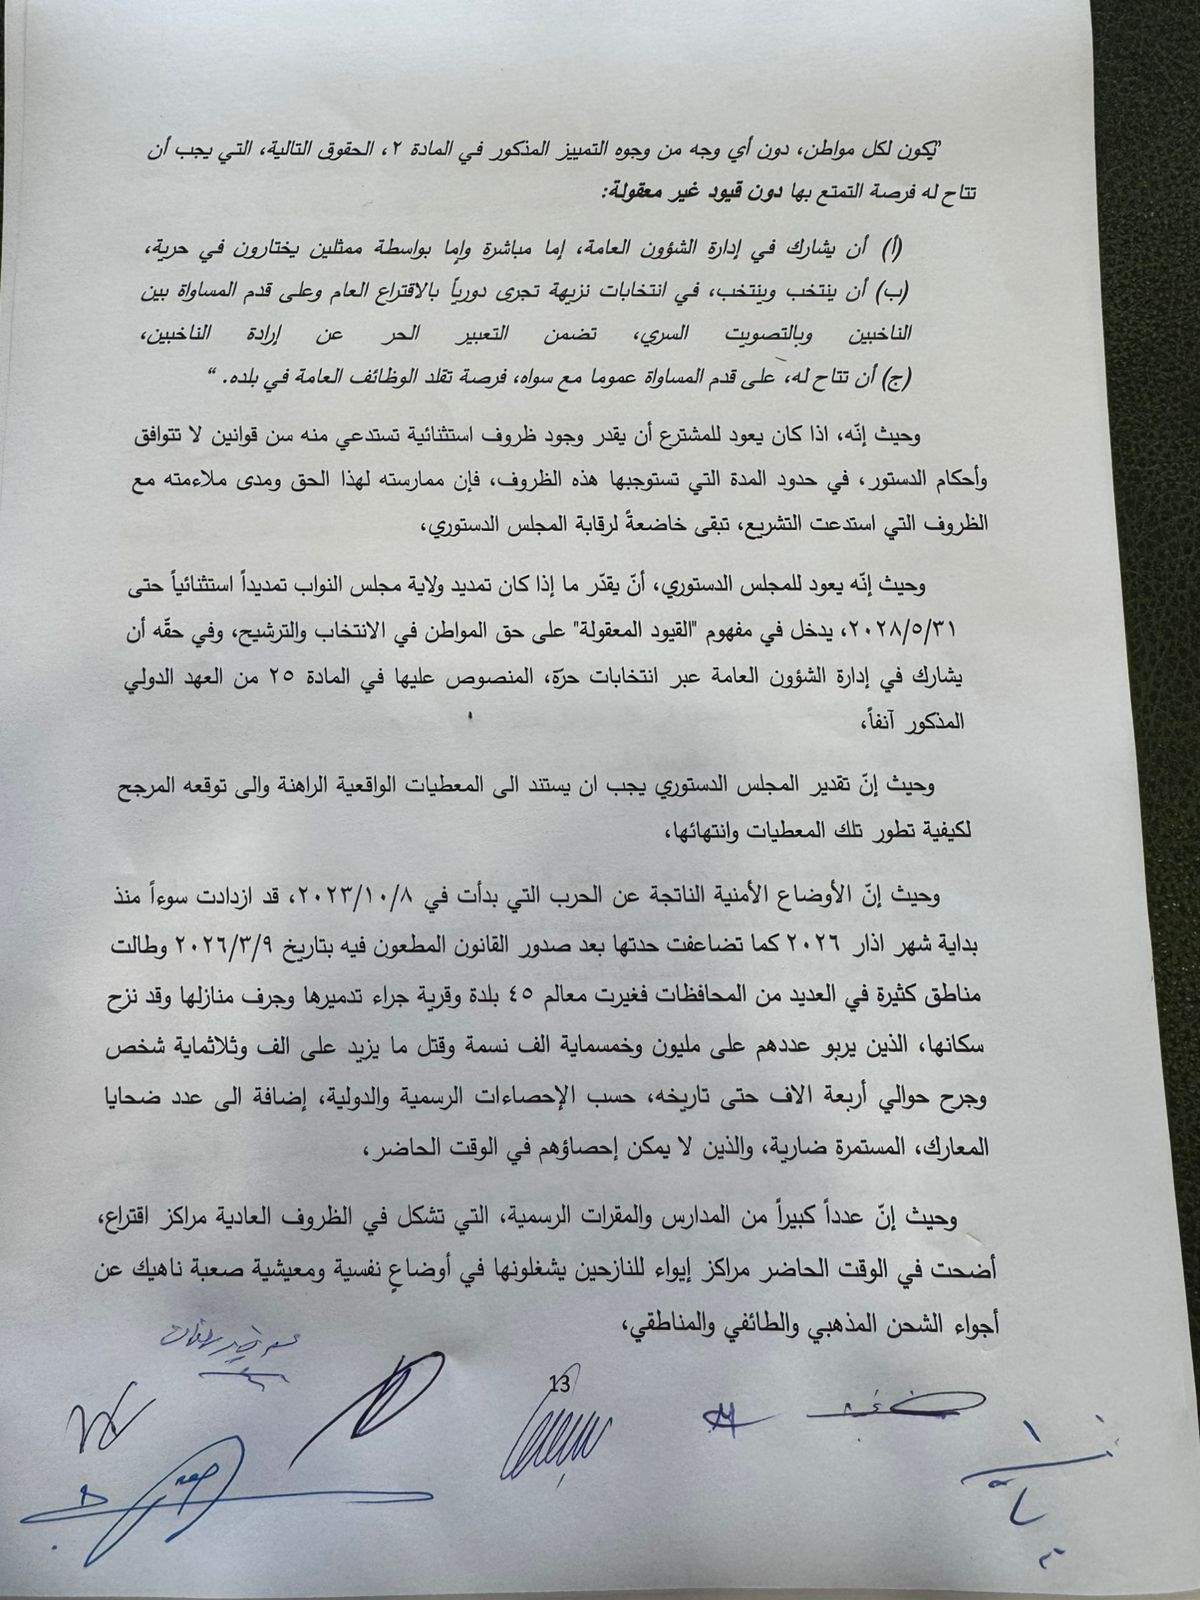 "يكون لكل مواطن، دون أي وجه من وجوه التمييز المذكور في المادة ٢، الحقوق التالية، التي يجب أن
تتاح له فرصة التمتع بها دون قيود غير معقولة:
(أ) أن يشارك في إدارة الشؤون العامة، إما مباشرة وإما بواسطة ممثلين يختارون في حرية،
(ب) أن ينتخب وينتخب، في انتخابات نزيهة تجرى دورياً بالاقتراع العام وعلى قدم المساواة بين
الناخبين وبالتصويت السري، تضمن التعبير الحر عن إرادة الناخبين،
(ج) أن تتاح له، على قدم المساواة عموما مع سواه، فرصة تقلد الوظائف العامة في بلده. "
وحيث إنّه، اذا كان يعود للمشترع أن يقدر وجود ظروف استثنائية تستدعي منه سن قوانين لا تتوافق
وأحكام الدستور، في حدود المدة التي تستوجبها هذه الظروف، فإن ممارسته لهذا الحق ومدى ملاءمته مع
الظروف التي استدعت التشريع، تبقى خاضعةً لرقابة المجلس الدستوري،
وحيث إنّه يعود للمجلس الدستوري، أنّ يقدّر ما إذا كان تمديد ولاية مجلس النواب تمديداً استثنائياً حتى
٢٠٢٨/٥/٣١، يدخل في مفهوم "القيود المعقولة" على حق المواطن في الانتخاب والترشيح، وفي حقّه أن
يشارك في إدارة الشؤون العامة عبر انتخابات حرّة، المنصوص عليها في المادة ٢٥ من العهد الدولي
المذكور آنفاً،
وحيث إنّ تقدير المجلس الدستوري يجب ان يستند الى المعطيات الواقعية الراهنة والى توقعه المرجح
لكيفية تطور تلك المعطيات وانتهائها،
وحيث إنّ الأوضاع الأمنية الناتجة عن الحرب التي بدأت في ٢٠٢٣/١٠/٨، قد ازدادت سوءاً منذ
بداية شهر اذار ٢٠٢٦ كما تضاعفت حدتها بعد صدور القانون المطعون فيه بتاريخ ٢٠٢٦/٣/٩ وطالت
مناطق كثيرة في العديد من المحافظات فغيرت معالم ٤٥ بلدة وقرية جراء تدميرها وجرف منازلها وقد نزح
سكانها، الذين يربو عددهم على مليون وخمسماية الف نسمة وقتل ما يزيد على الف وثلاثماية شخص
وجرح حوالي أربعة الاف حتى تاريخه، حسب الإحصاءات الرسمية والدولية، إضافة الى عدد ضحايا
المعارك، المستمرة ضارية، والذين لا يمكن إحصاؤهم في الوقت الحاضر،
وحيث إنّ عدداً كبيراً من المدارس والمقرات الرسمية، التي تشكل في الظروف العادية مراكز اقتراع،
أضحت في الوقت الحاضر مراكز إيواء للنازحين يشغلونها في أوضاعٍ نفسية ومعيشية صعبة ناهيك عن
أجواء الشحن المذهبي والطائفي والمناطقي،
13